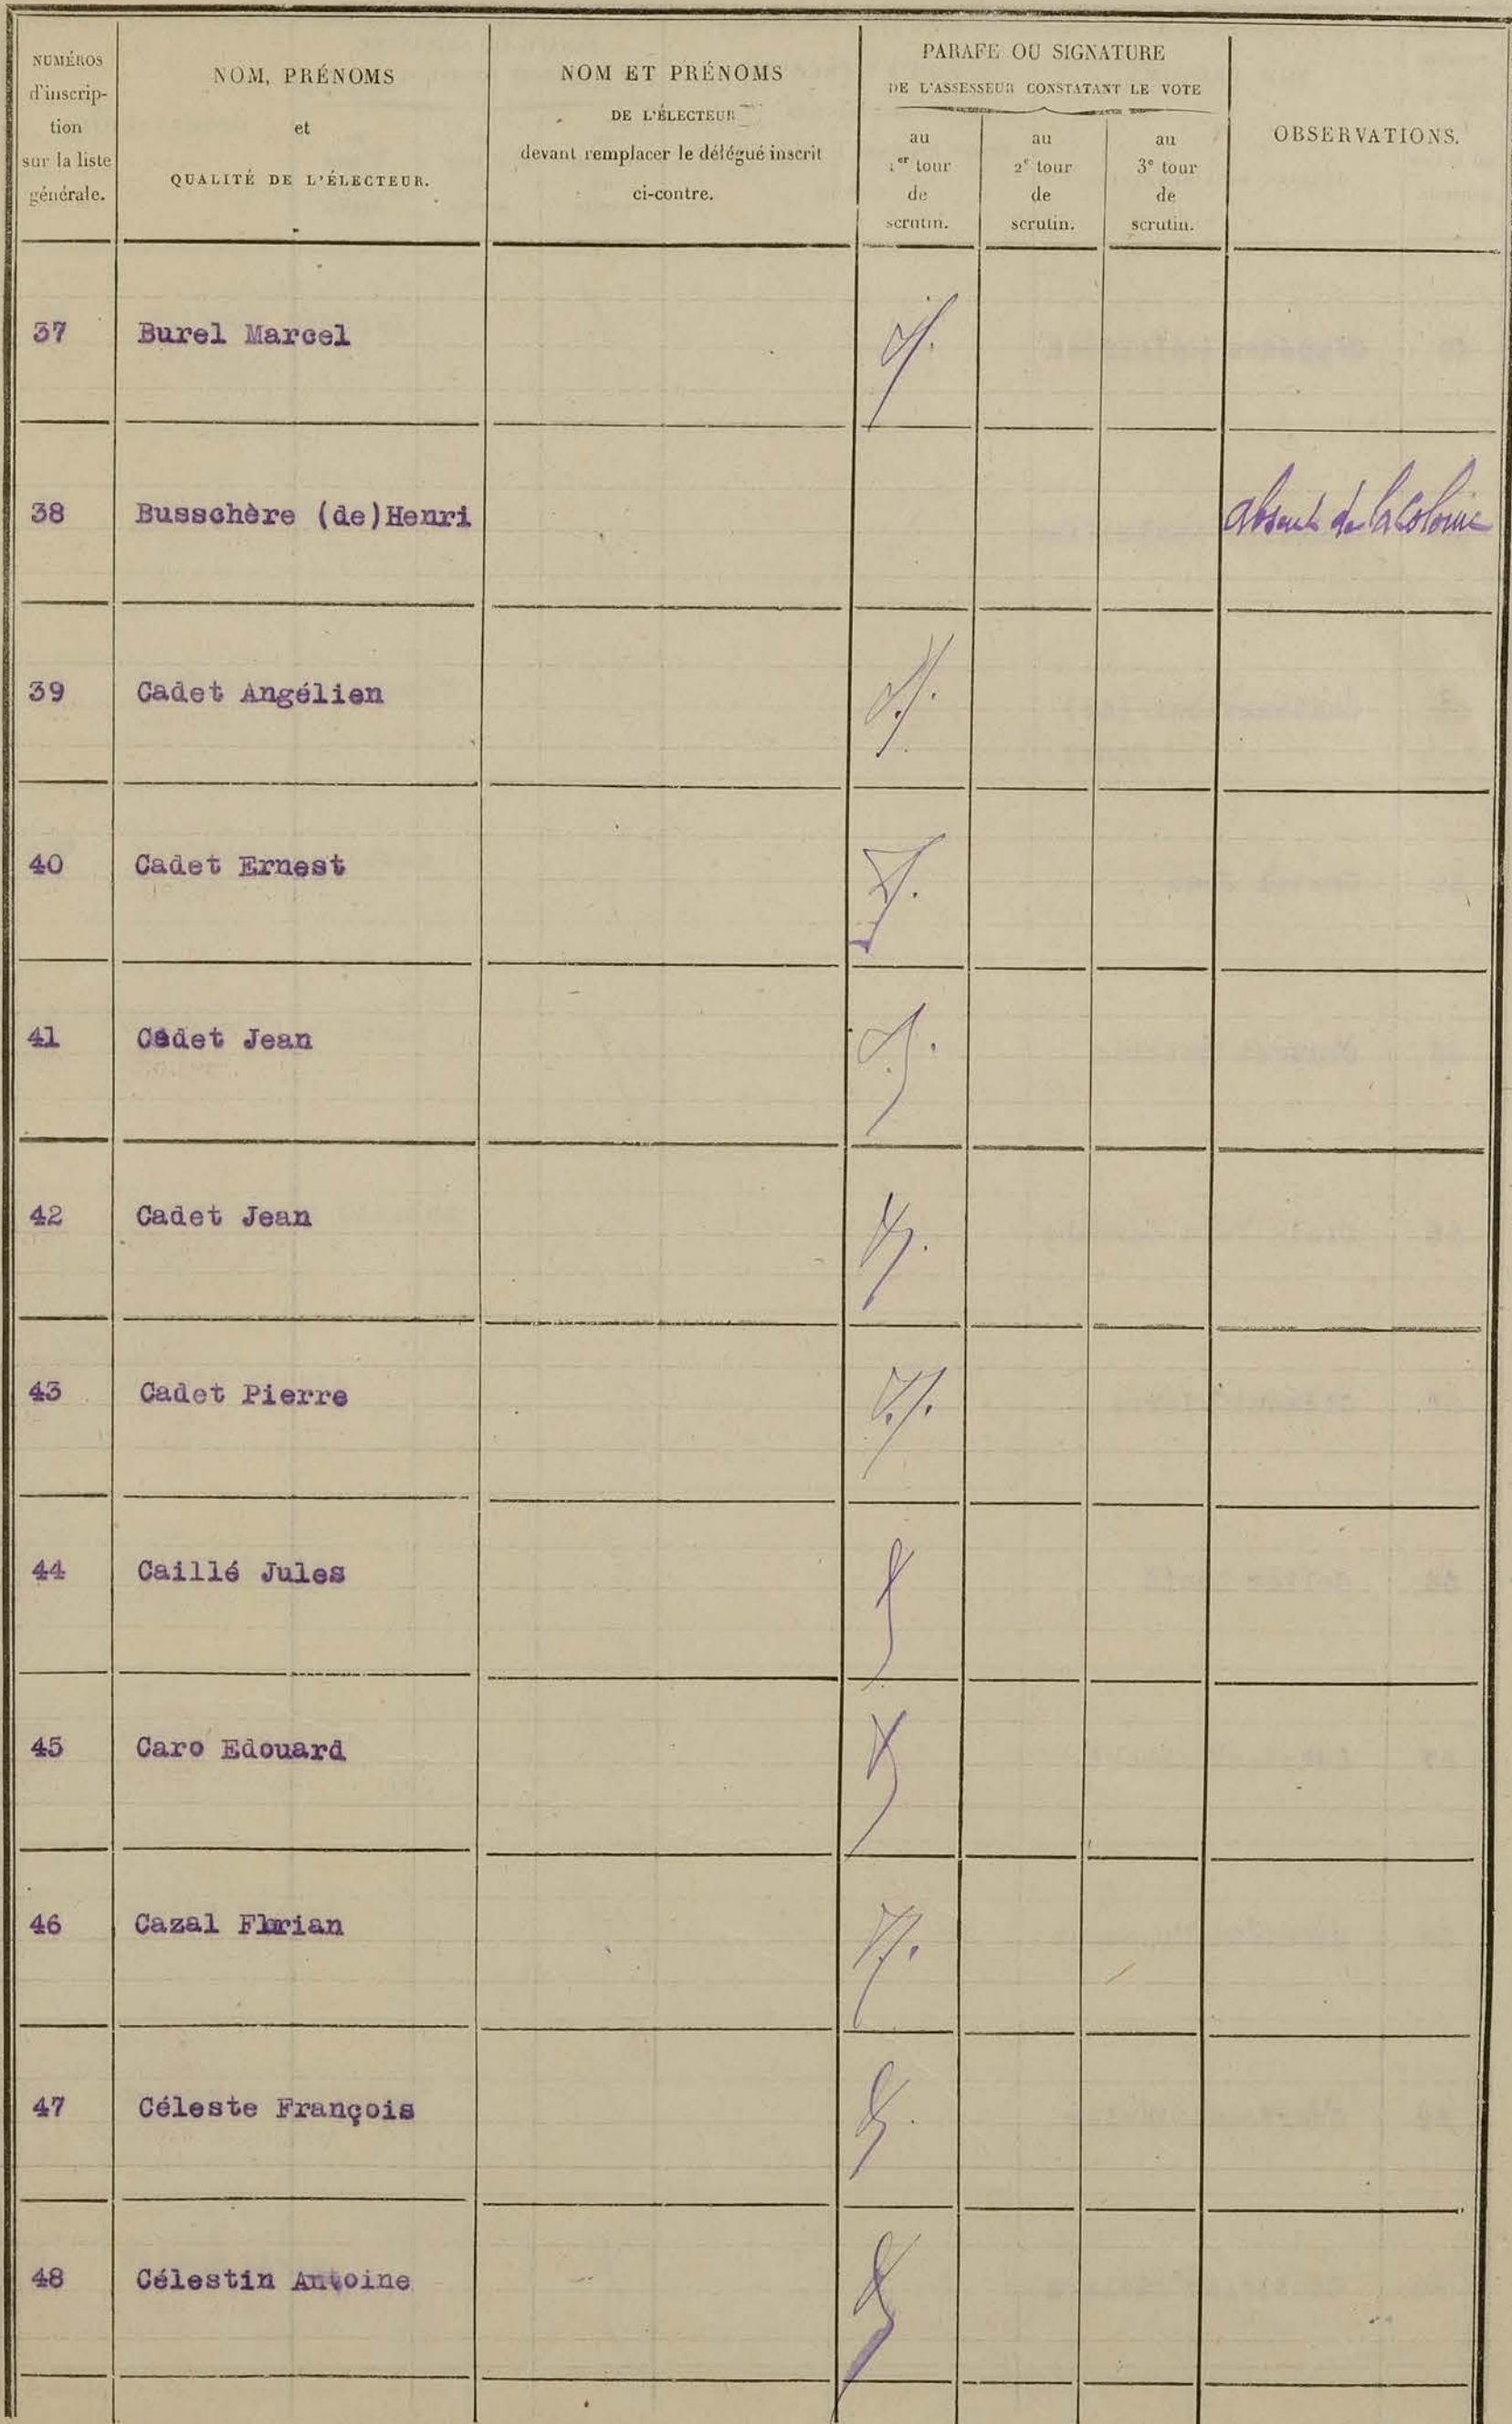 NUMÉROS
d'inscrip-
tion
sur la liste
générale.
NOM, PRÉNOMS
et
QUALITÉ DE L'ÉLECTEUR.
NOM ET PRÉNOMS
DE L'ÉLECTEUR
devant remplacer le délégué inscrit
ci-contre.
PARAFE OU SIGNATURE
DE L'ASSESSEUR CONSTATANT LE VOTE
au
1er tour
de
scrutin.
au
2e tour
de
scrutin.
au
3e tour
de
scrutin.
OBSERVATIONS.
37 Burel Marcel
38 Busschère (de)Henri absent de la Colonie
39 Cadet Angélien
40 Cadet Ernest
41 Cadet Jean
42 Cadet Jean
43 Cadet Pierre
44 Caillé Jules
45 Caro Edouard
46 Cazal Flrian
47 Céleste François
48 Célestin Antoine